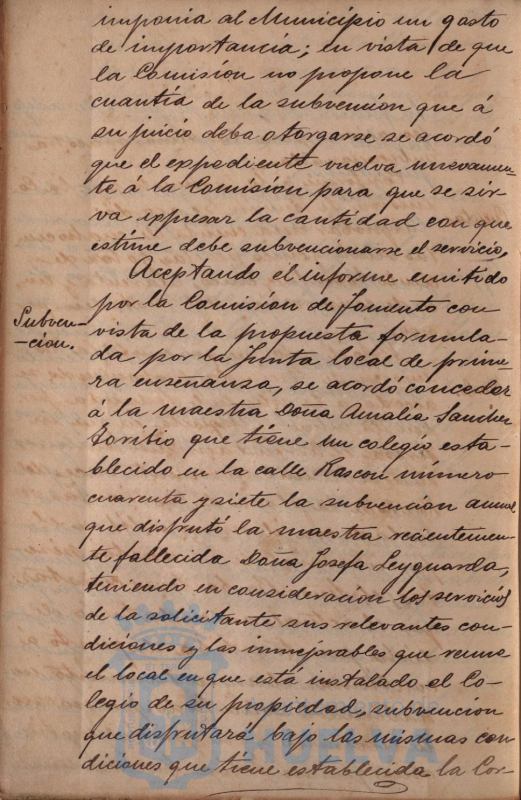 imponia al Municipio un gasto
de importancia; en vista de que
la Comisión no propone la
cuantía de la subvencion que á
su juicio deba otorgarse se acordó
que el expediente vuelva nuevamen-
te á la Comisión para que se sir-
va expresar la cantidad con que
estime debe subvencionarse el servicio.
Aceptando el informe emitido
Subven-
-cion.
por la Comisión de Fomento con
vista de la propuesta formula-
da por la Junta local de prime-
ra enseñanza, se acordó conceder
á la maestra Doña Amalia Sanchez
Toribio que tiene un colegio esta-
blecido en la calle Rascon número
cuarenta y siete la subvención anual
que disfrutó la maestra recientemen-
te fallecida Doña Josefa Leyguarda,
teniendo en consideración los servicios
de la solicitante sus relevantes con-
diciones y las inmejorables que reune
el local en que está instalado el Co-
legio de su propiedad, subvencion
que disfrutará bajo las mismas con
diciones que tiene establecida la Cor-
HUELVA